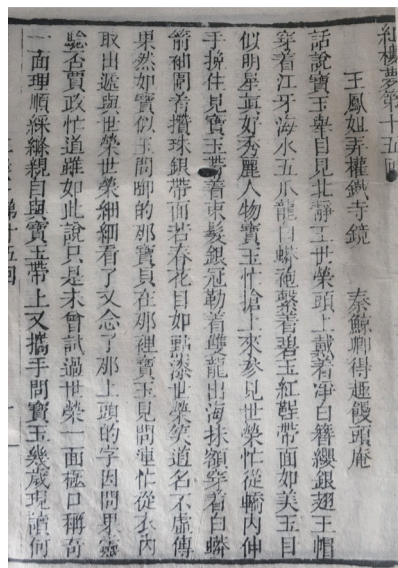 紅樓夢第十五回
王鳳姐弄權鐵寺鏡 秦鯨卿得趣饅頭庵
話說寶玉舉目見北靜王世榮頭上戴着淨白簪纓銀翅王帽
穿着江牙海水五爪龍白蟒袍繫着碧玉紅鞓帶面如美玉目
似明星真好秀麗人物寶玉忙搶上來參見世榮忙從轎內伸
手挽住見寶玉帶着束髮銀冠勒着雙龍出海抹額穿着白蟒
箭袖圍着攢珠銀帶面若春花目如點漆世榮笑道名不虛傳
果然如寶似玉問啣的那寶貝在那裡寶玉見問連忙從衣內
取出遞與世榮世榮細細看了又念了那上頭的字因問果靈
驗否賈政忙道雖如此說只是未曾試過世榮一面極口稱奇
一面理順綵縧親自與寶玉帶上又攜手問寶玉幾歲現讀何
第十五回